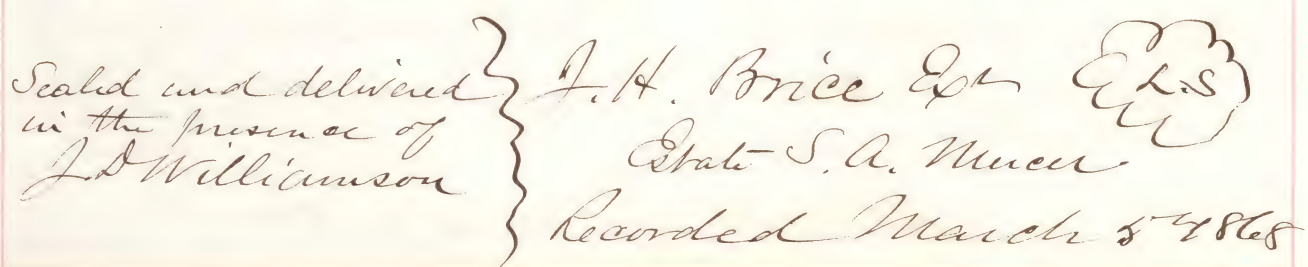 Sealed and delivered
in the presence of
J D Williamson
J. H. Brice Exr L.S
Estate S. A. Mercer
Recorded March 5th 1868